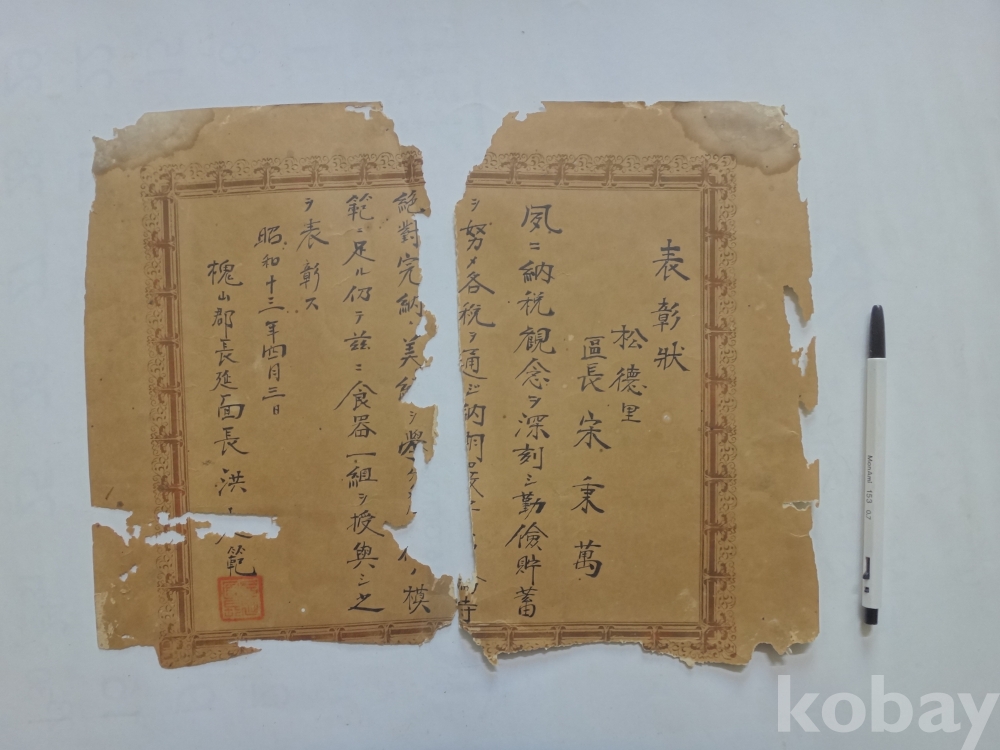 表彰狀
松德里
區長 宋秉萬
夙ニ納稅觀念ヲ深刻ニシ勤儉貯蓄
ヲ努メ各稅ヲ通シ納期
絕對完納 美 ヲ擧 模
範ニ足ル仍テ茲ニ食器一組ヲ授與シ之
ヲ表彰ス
昭和十三年四月三日
槐山郡長延面長 洪 範
kobay
MonAmi 153 0.7